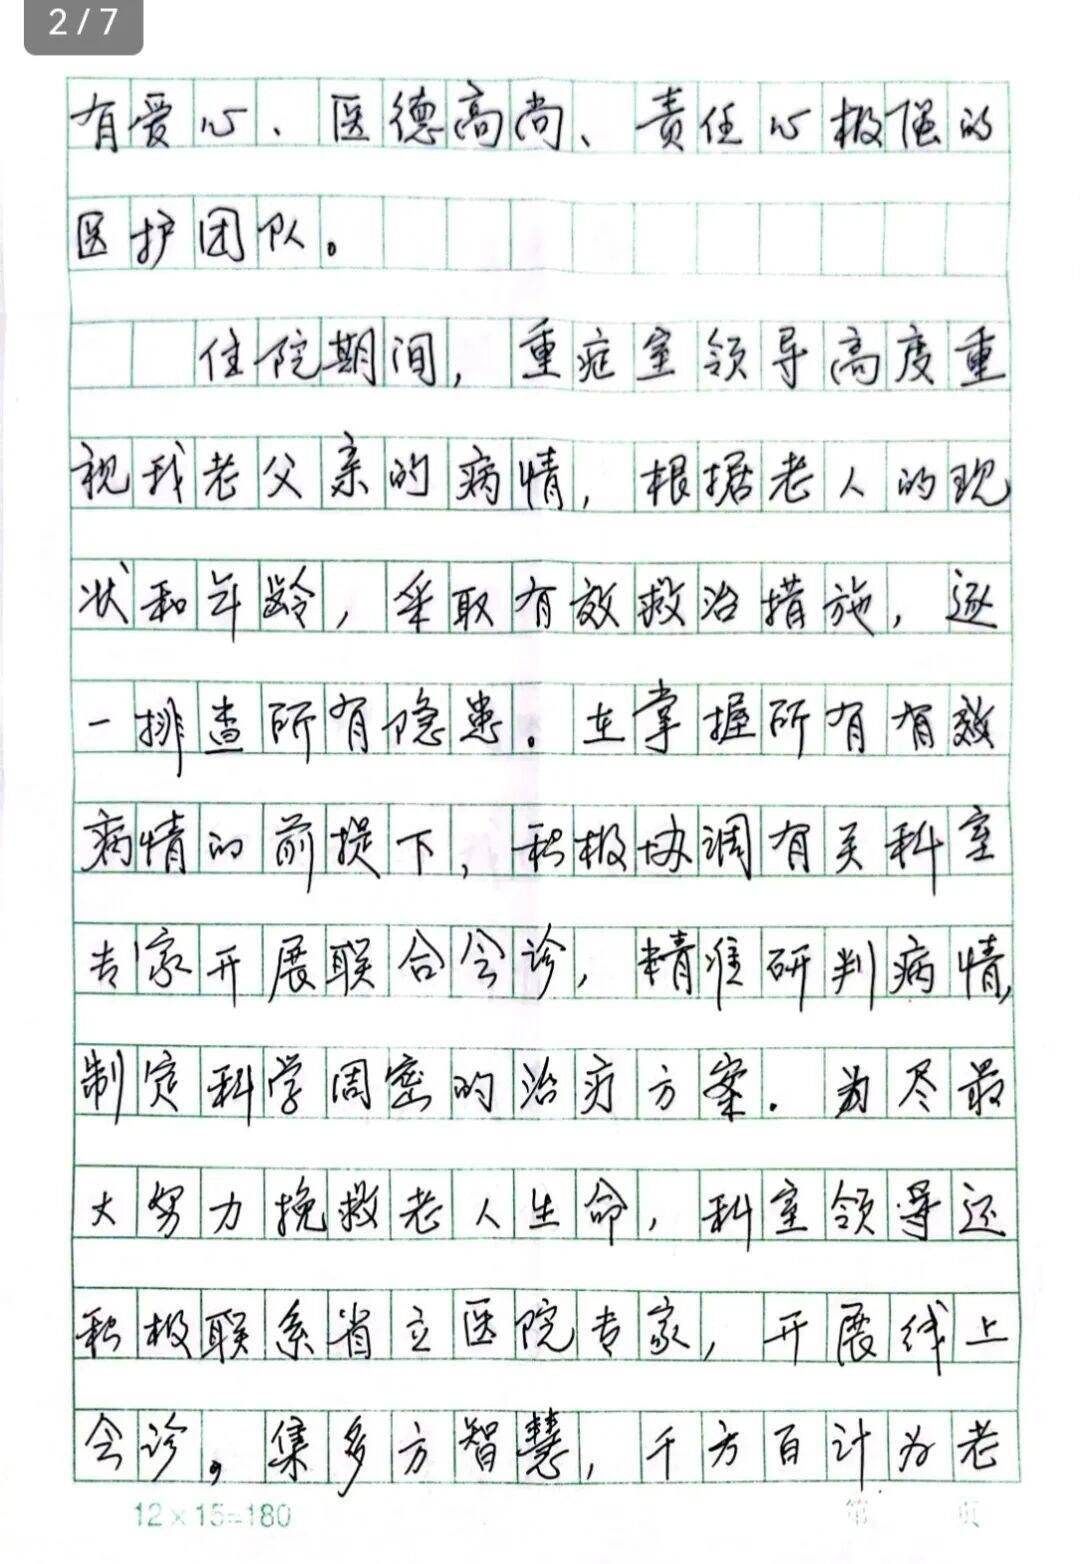 2/7
有爱心、医德高尚、责任心极强的
医护团队。
住院期间，重症室领导高度重
视我老父亲的病情，根据老人的现
状和年龄，采取有效救治措施，逐
一排查所有隐患。在掌握所有有效
病情的前提下，积极协调有关科室
专家开展联合会诊，精准研判病情，
制定科学周密的治疗方案。为尽最
大努力挽救老人生命，科室领导还
积极联系省立医院专家，开展线上
会诊，集多方智慧，千方百计为老
12×15=180 第 页